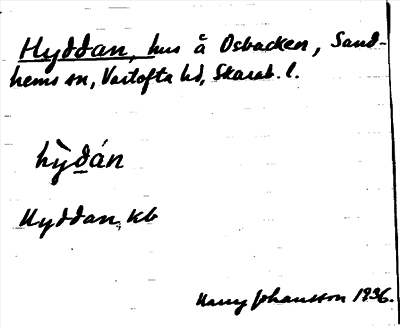 Hyddan, hus å Osbacken, Sand-
hems sn, Vartofta hd, Skarab. l.
hỳdán
Hyddan, kb
Harry Johansson 1936.